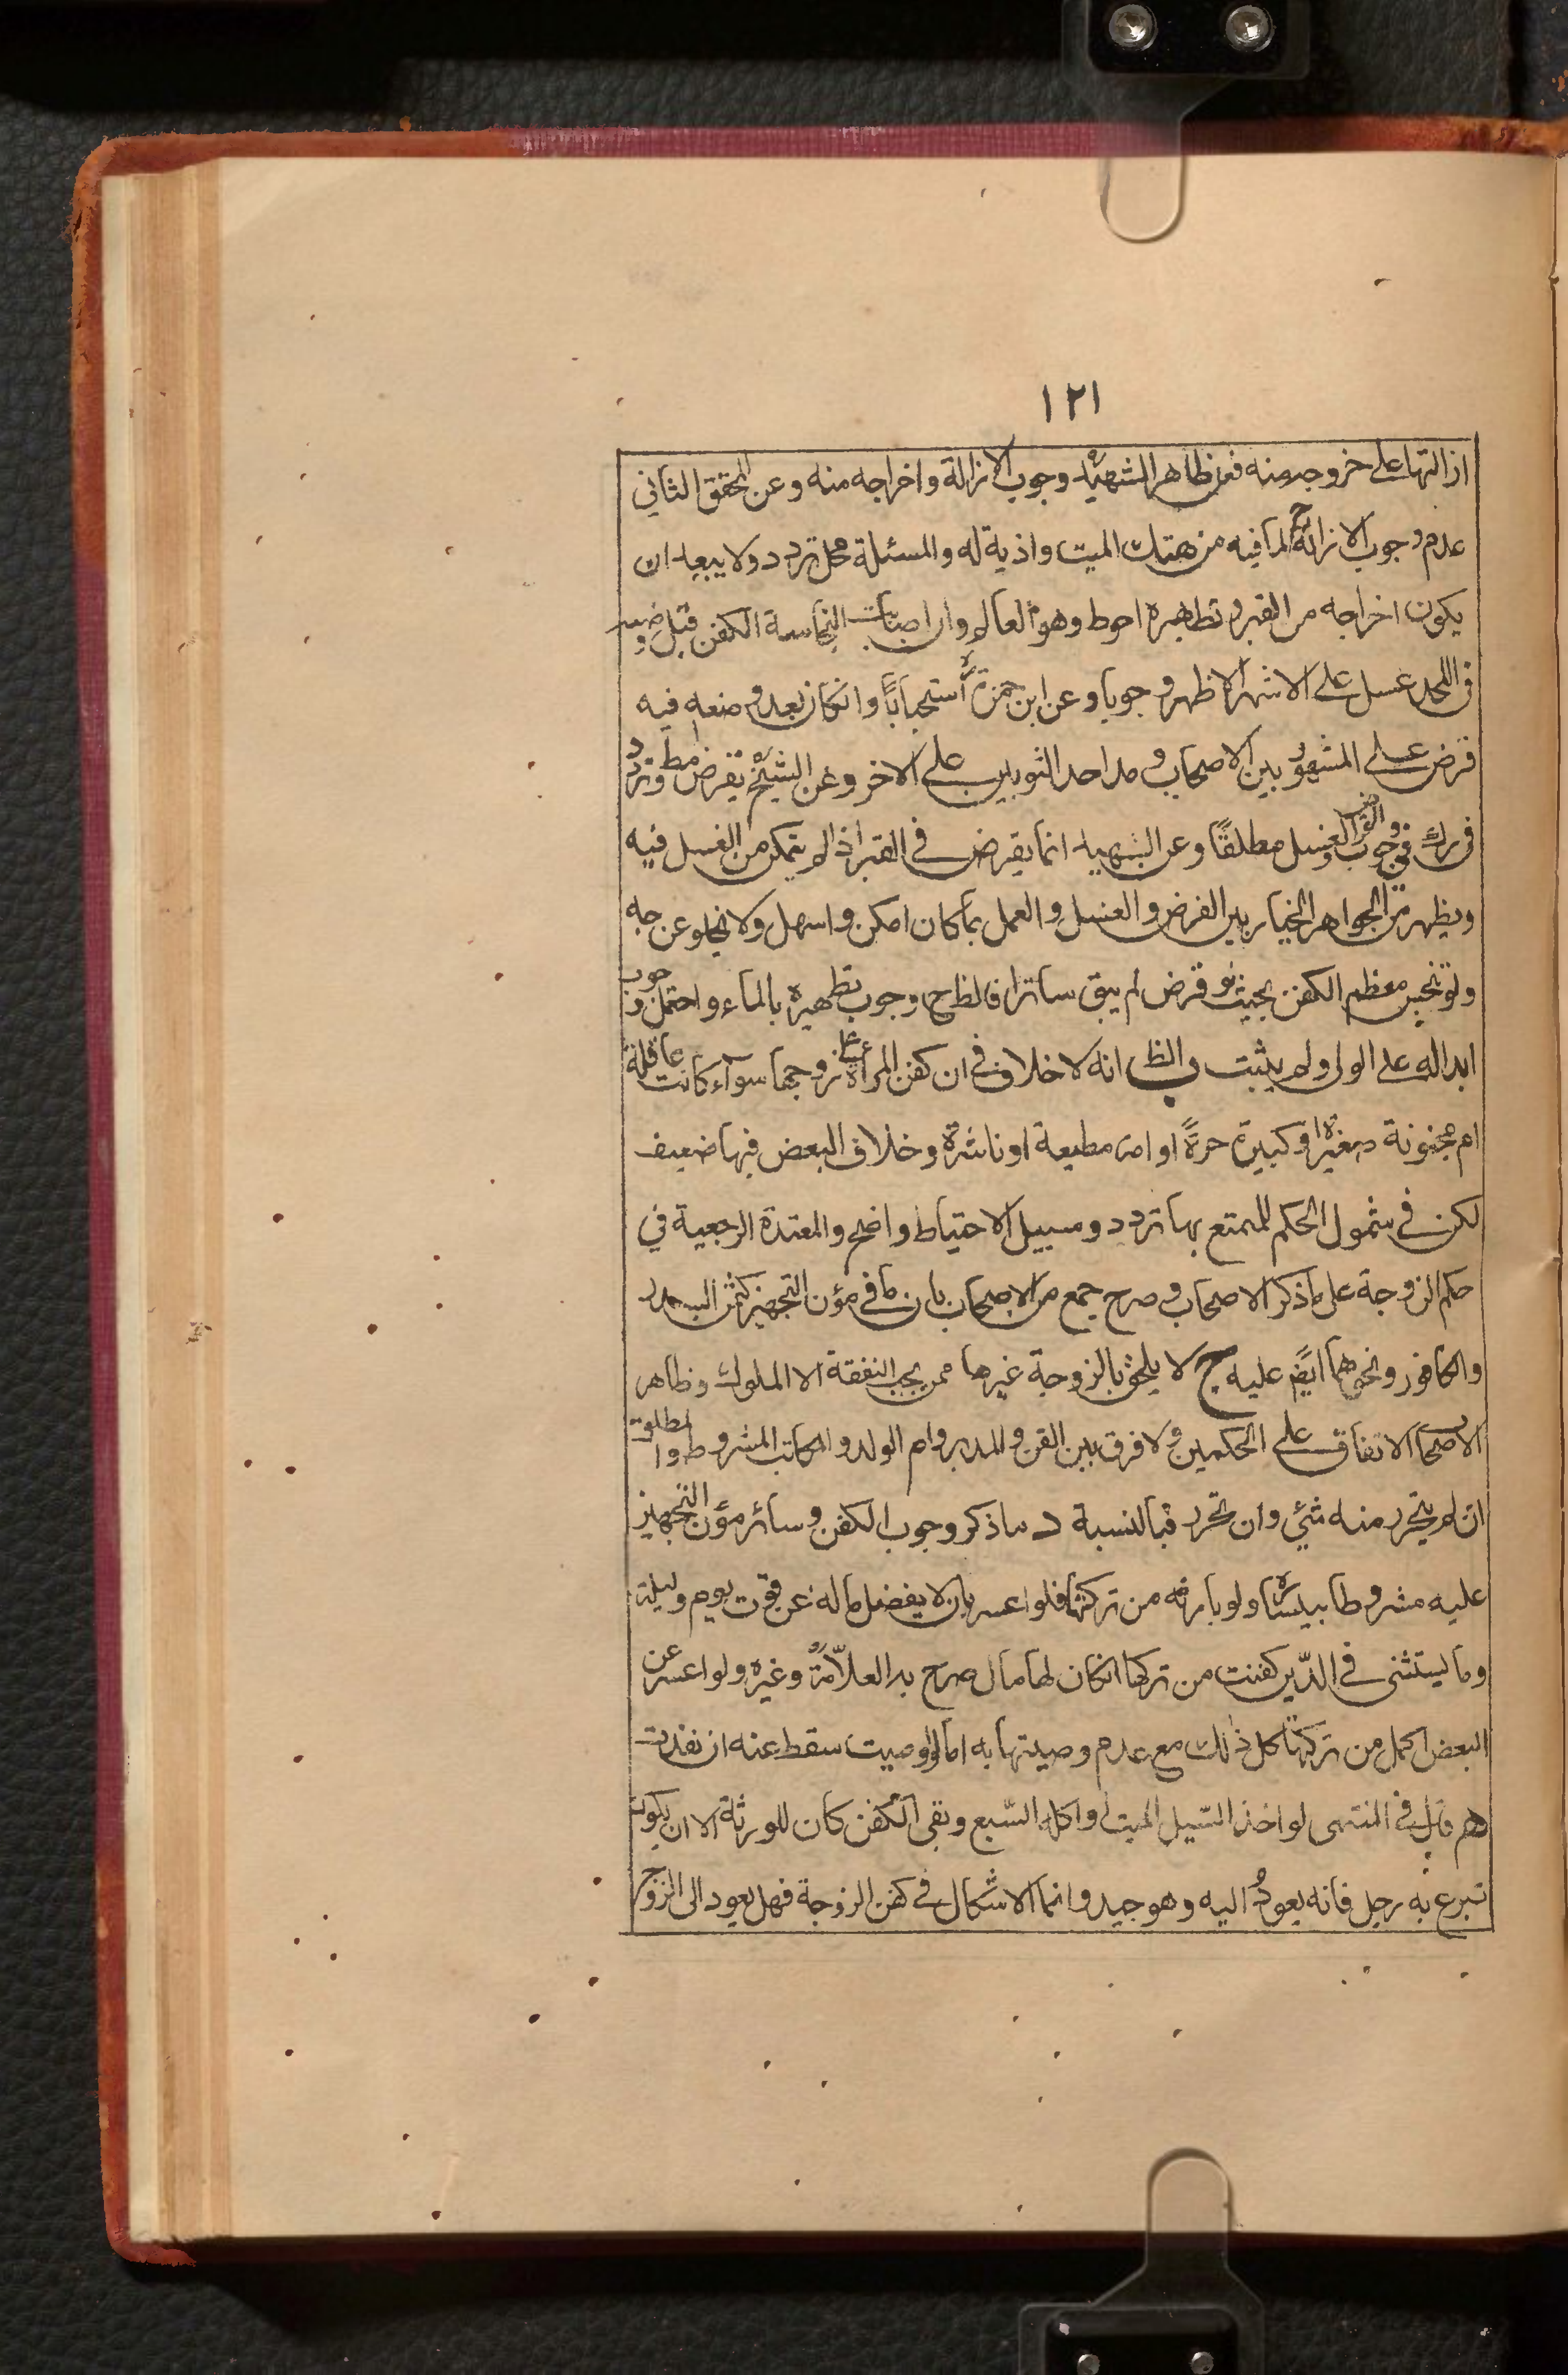 ١٢١
ازالتها على خروجه منه فعن ظاهر الشهيد ره وجوب الازالة واخراجه منه وعن المحقق الثاني
عدم وجوب الازالة ح لما فيه من هتك الميت واذية له والمسئلة محل تردد ولا يبعد ان
يكون اخراجه من القبر وتطهيره احوط وهو العالم وان اصابت النجاسة الكفن قبل وضعه
في اللحد غسل على الاشهر الاظهر وجوبا وعن ابن حمزة ره استحبابًا وانكان بعد وضعه فيه
قرض على المشهور بين الاصحاب ومد احد الثوبين على الاخر وعن الشيخ ره يقرض مط وتردد
في رك في وجوب القرض والغسل مطلقًا وعن الشهيد انما يقرض في القبر اذا لم يتمكن من الغسل فيه
ويظهر من الجواهر الخيار بين القرض والغسل والعمل بما كان امكن واسهل ولا يخلو عن وجه
ولو تنجس معظم الكفن بحيث لو قرض لم يبق ساترا فالظ ح وجوب تطهيره بالماء واحتمل وجوب
ابداله على الولي ولم يثبت والظ انه لا خلاف في ان كفن المرأة على زوجها سوآء كانت عاقلة
ام مجنونة صغيرة او كبيرة حرةً او امة مطيعة او ناشزة وخلاف البعض فيها ضعيف
لكن في شمول الحكم للمتمتع بها تردد وسبيل الاحتياط واضح والمعتدة الرجعية في
حكم الزوجة على ما ذكر الاصحاب وصرح جمع من الاصحاب بان باقي مؤن التجهيز كثمن السدر
والكافور ونحوهما ايضً عليه ح لا يلحق بالزوجة غيرها ممن يجب النفقة الا المملوك وظاهر
الاصحاب الاتفاق على الحكمين ولا فرق بين القن والمدبر وام الولد والمكاتب المشروط والمطلق
ان لم يتحرر منه شئ وان تحرر فبالنسبة د ما ذكر وجوب الكفن وسائر مؤن التجهيز
عليه مشروطا بيساره ولو بارثه من تركتها فلو اعسر بان لا يفضل ماله عن قوت يوم وليلة
وما يستثنى في الدّين كفنت من تركتها انكان لها مال صرح به العلاّمة ره وغيره ولو اعسر عن
البعض اكمل من تركتها كل ذلك مع عدم وصيتها به اما لو اوصيت سقط عنه ان نفذت
هم قال في المنتهى لو اخذ السّيل الميت او اكله السّبع وبقى الكفن كان للورثة الا ان يكون
تبرع به رجل فانه يعود اليه وهو جيد وانما الاشكال في كفن الزوجة فهل يعود الى الزوج